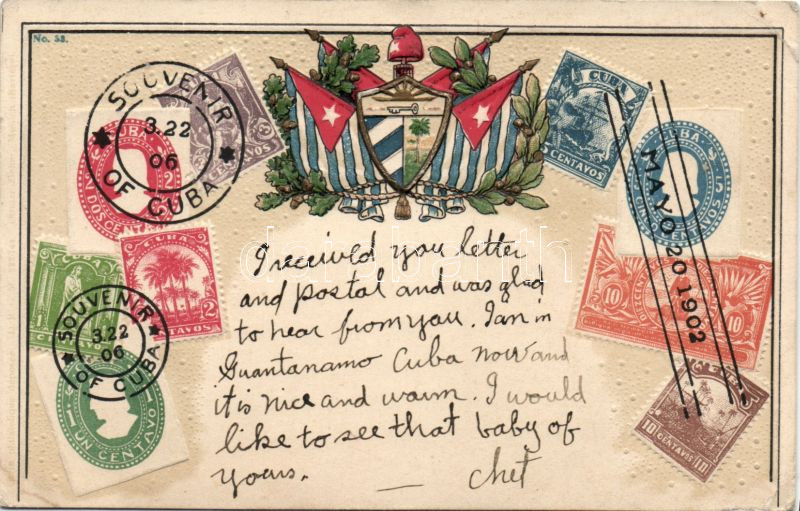 No. 53.
SOUVENIR
3.22
06
OF CUBA
CUBA
2
DOS CENTAVOS
3
CUBA
CENTAVOS
CUBA
5
CENTAVOS
MAYO 20 1902
CUBA
2
CENTAVOS
10
10
10 CENTAVOS 10
SOUVENIR
3.22
06
OF CUBA
1 UN CENTAVO 1
I received you letter
and postal and was glad
to hear from you. I am in
Guantanamo Cuba now and
it is nice and warm. I would
like to see that baby of
yours.
— Chet